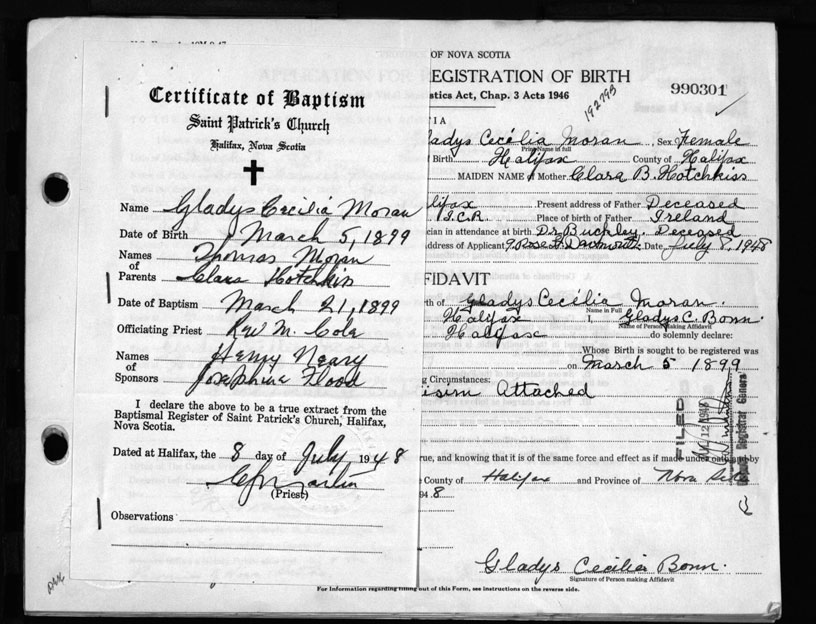 Certificate of Baptism
Saint Patrick's Church
Halifax, Nova Scotia
Name Gladys Cecilia Moran
Date of Birth March 5, 1899
Names Thomas Moran
of
Parents Clara Hotchkiss
Date of Baptism March 21, 1899
Officiating Priest Rev M. Cole
Names Henry Neary
of
Sponsors Josephine Flood
I declare the above to be a true extract from the
Baptismal Register of Saint Patrick's Church, Halifax,
Nova Scotia.
Dated at Halifax, the 8 day of July 1948
(Priest)
Observations
OF NOVA SCOTIA
EGISTRATION OF BIRTH
stics Act, Chap. 3 Acts 1946
990301
192793
ladys Cecélia Moran, Sex Female
Print Name in full
f Birth Halifax County of Halifax
MAIDEN NAME of Mother Clara B. Hotchkiss
lifax Present address of Father Deceased
I.C.R. Place of birth of Father Ireland
cian in attendance at birth Dr. Buckley. Deceased
ddress of Applicant 9 Rose St Dartmouth Date July 8, 1948
FFIDAVIT
th of Gladys Cecélia Moran.
Name in Full
Halifax I, Gladys C. Bonn.
Name of Person Making Affidavit
Halifax do solemnly declare:
Whose Birth is sought to be registered was
on March 5 1899
g Circumstances:
isim Attached
FILED
Deputy Registrar General
rue, and knowing that it is of the same force and effect as if made under oath and by
County of Halifax and Province of Nova
94 8
Gladys Cecilia Bonn.
Signature of Person making Affidavit
For Information regarding filling out of this Form, see instructions on the reverse side.